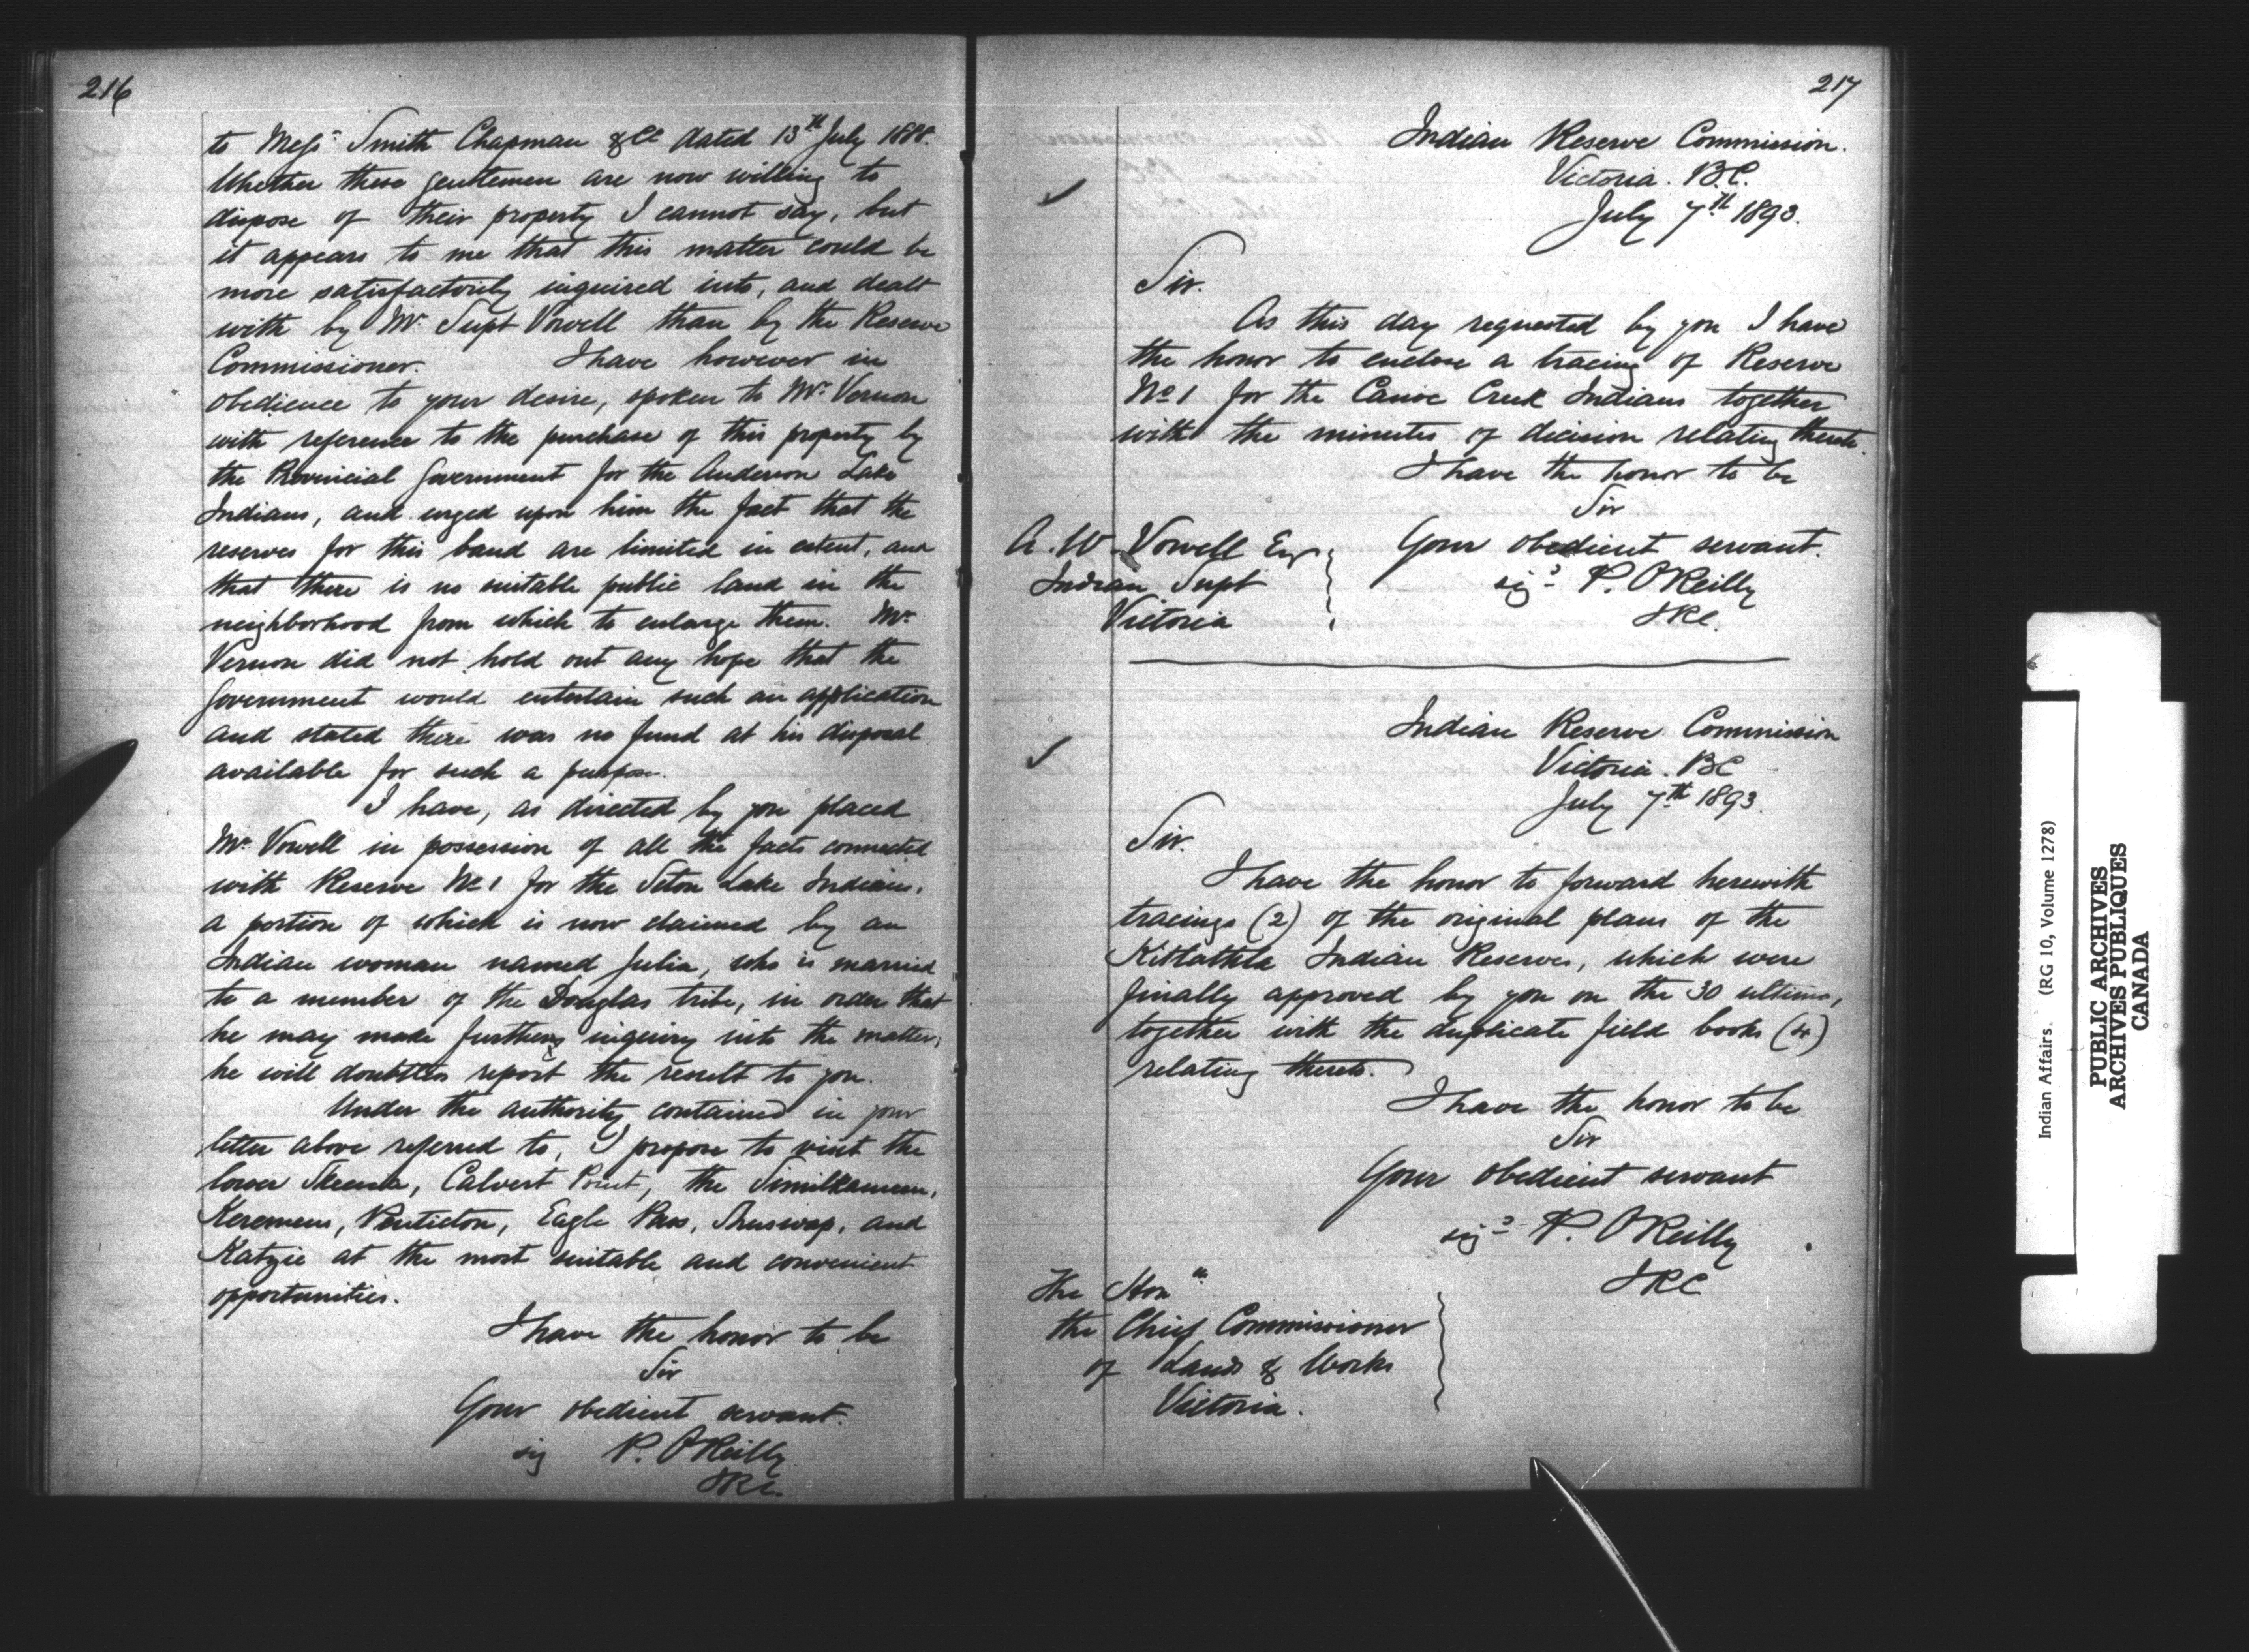 216
to Messrs Smith Chapman & Co dated 13th July 1888.
Whether these gentlemen are now willing to
dispose of their property I cannot say, but
it appears to me that this matter could be
more satisfactorily inquired into, and dealt
with by Mr Supt Vowell than by the Reserve
Commissioner. I have however in
obedience to your desire, spoken to Mr. Vernon
with reference to the purchase of this property by
the Provincial Government for the Anderson Lake
Indians, and urged upon him the fact that the
reserves for this band are limited in extent, and
that there is no suitable public land in the
neighborhood from which to enlarge them. Mr
Vernon did not hold out any hope that the
Government would entertain such an application
and stated there was no fund at his disposal
available for such a purpose.
I have, as directed by you placed
Mr Vowell in possession of all the facts connected
with Reserve No 1 for the Seton Lake Indians,
a portion of which is now claimed by an
Indian woman named Julia, who is married
to a member of the Douglas tribe, in order that
he may make further inquiry into the matter;
he will doubtless report the result to you.
Under the authority contained in your
letter above referred to, I propose to visit the
lower Skeena, Calvert Point, the Similkameen,
Keremeus, Penticton, Eagle Pass, Shuswap, and
Katzie at the most suitable and convenient
opportunities.
I have the honor to be
Sir
Your obedient servant.
sig P. O'Reilly
IRC.
217
Indian Reserve Commission.
Victoria. B.C.
July 7th 1893.
Sir.
As this day requested by you I have
the honor to enclose a tracing of Reserve
No 1 for the Canoe Creek Indians together
with the minutes of decision relating thereto.
I have the honor to be
Sir
Your obedient servant.
sigd P. O'Reilly
IRC.
A. W. Vowell Esq
Indian Supt
Victoria
Indian Reserve Commission
Victoria. BC
July 7th 1893.
Sir.
I have the honor to forward herewith
tracings (2) of the original plans of the
Kitlathla Indian Reserves, which were
finally approved by you on the 30 ultimo,
together with the duplicate field books (4)
relating thereto.
I have the honor to be
Sir
Your obedient servant
sigd P. O'Reilly
IRC
The Hon
the Chief Commissioner
of Lands & Works
Victoria.
Indian Affairs. (RG 10, Volume 1278)
PUBLIC ARCHIVES
ARCHIVES PUBLIQUES
CANADA